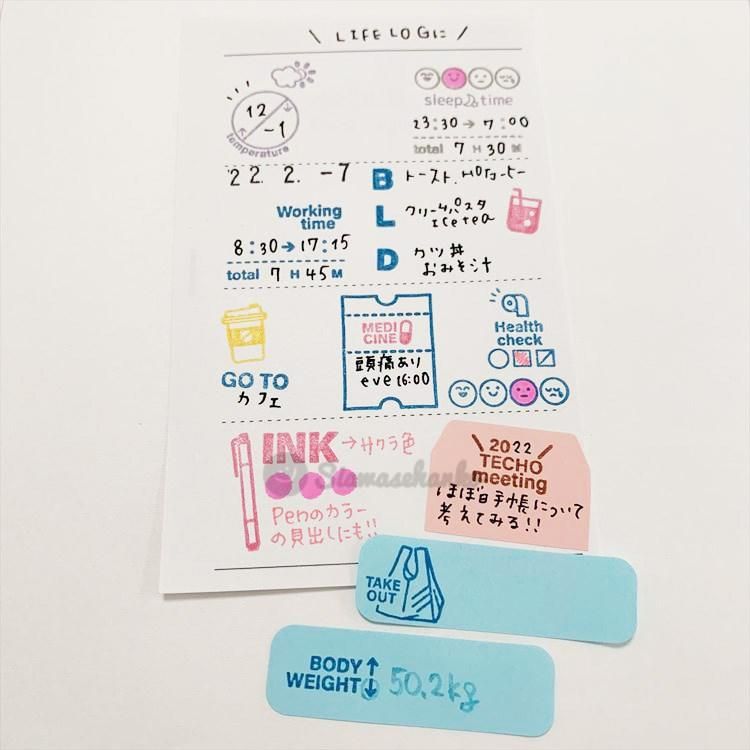 \ LIFE LOGに /
12
-1
temperature
sleep time
23:30→7:00
total 7 H 30 M
'22. 2. -7
Working
time
8:30→17:15
total 7 H 45 M
B トースト、HOTコーヒー
L クリームパスタ
Ice tea
D カツ丼
おみそ汁
GO TO
カフェ
MEDI
CINE
頭痛あり
eve 16:00
Health
check
INK→サクラ色
Siawasehanko
Penのカラー
の見出しにも!!
\ 2022 /
TECHO
meeting
ほぼ日手帳について
考えてみる!!
TAKE
OUT
BODY↑
WEIGHT↓ 50.2kg